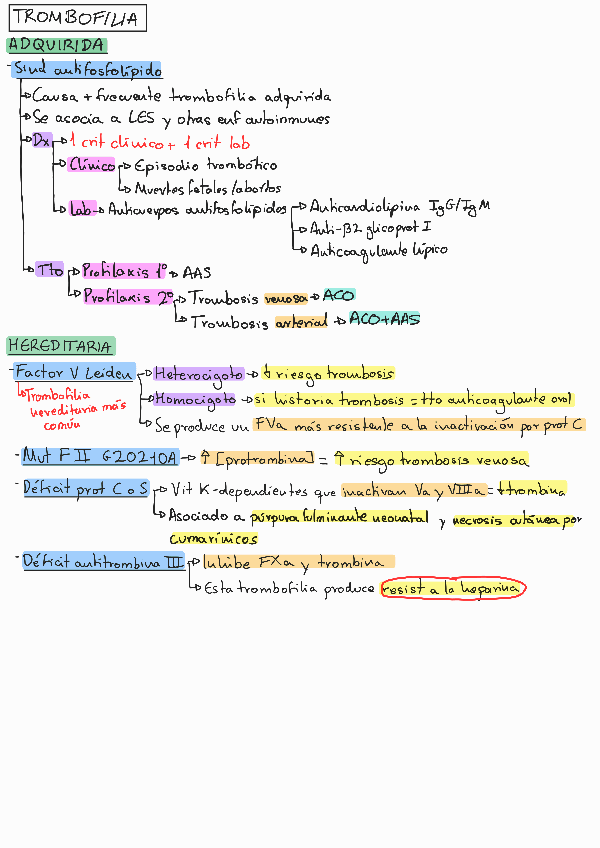 TROMBOFILIA
ADQUIRIDA
- Sínd antifosfolípido
→ Causa + frecuente trombofilia adquirida
→ Se asocia a LES y otras enf autoinmunes
→ Dx → 1 crit clínico + 1 crit lab
→ Clínico → Episodio trombótico
→ Muertes fetales/abortos
→ Lab → Anticuerpos antifosfolípidos → Anticardiolipina IgG/IgM
→ Anti-β2 glicoprot I
→ Anticoagulante lúpico
→ Tto → Profilaxis 1º → AAS
→ Profilaxis 2º → Trombosis venosa → ACO
→ Trombosis arterial → ACO+AAS
HEREDITARIA
- Factor V Leiden → Heterocigoto → ↓ riesgo trombosis
↳ Trombofilia hereditaria más común
→ Homocigoto → si historia trombosis = tto anticoagulante oral
→ Se produce un FVa más resistente a la inactivación por prot C
- Mut F II G20210A → ↑ [protrombina] = ↑ riesgo trombosis venosa
- Déficit prot C o S → Vit K-dependientes que inactivan Va y VIIIa = ↓ trombina
→ Asociado a púrpura fulminante neonatal y necrosis cutánea por
cumarínicos
- Déficit antitrombina III → Inhibe FXa y trombina
→ Esta trombofilia produce resist a la heparina